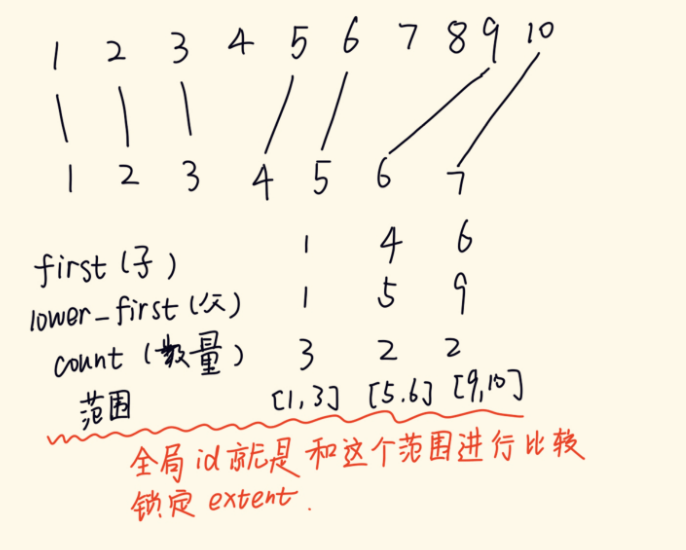 1 2 3 4 5 6 7 8 9 10
1 2 3 4 5 6 7
first (子) 1 4 6
lower_first (父) 1 5 9
count (数量) 3 2 2
范围 [1,3] [5.6] [9,10]
全局id就是和这个范围进行比较
锁定 extent.